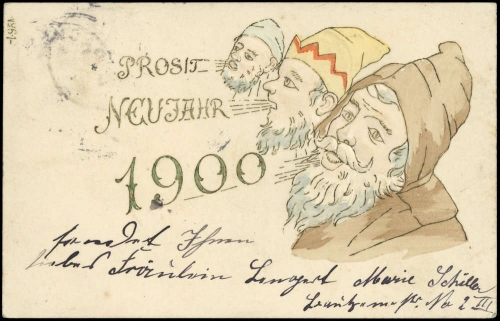 PROSIT
NEUJAHR
1900
sendet Ihnen
liebes Fräulein Marie Schiller
No 2 III